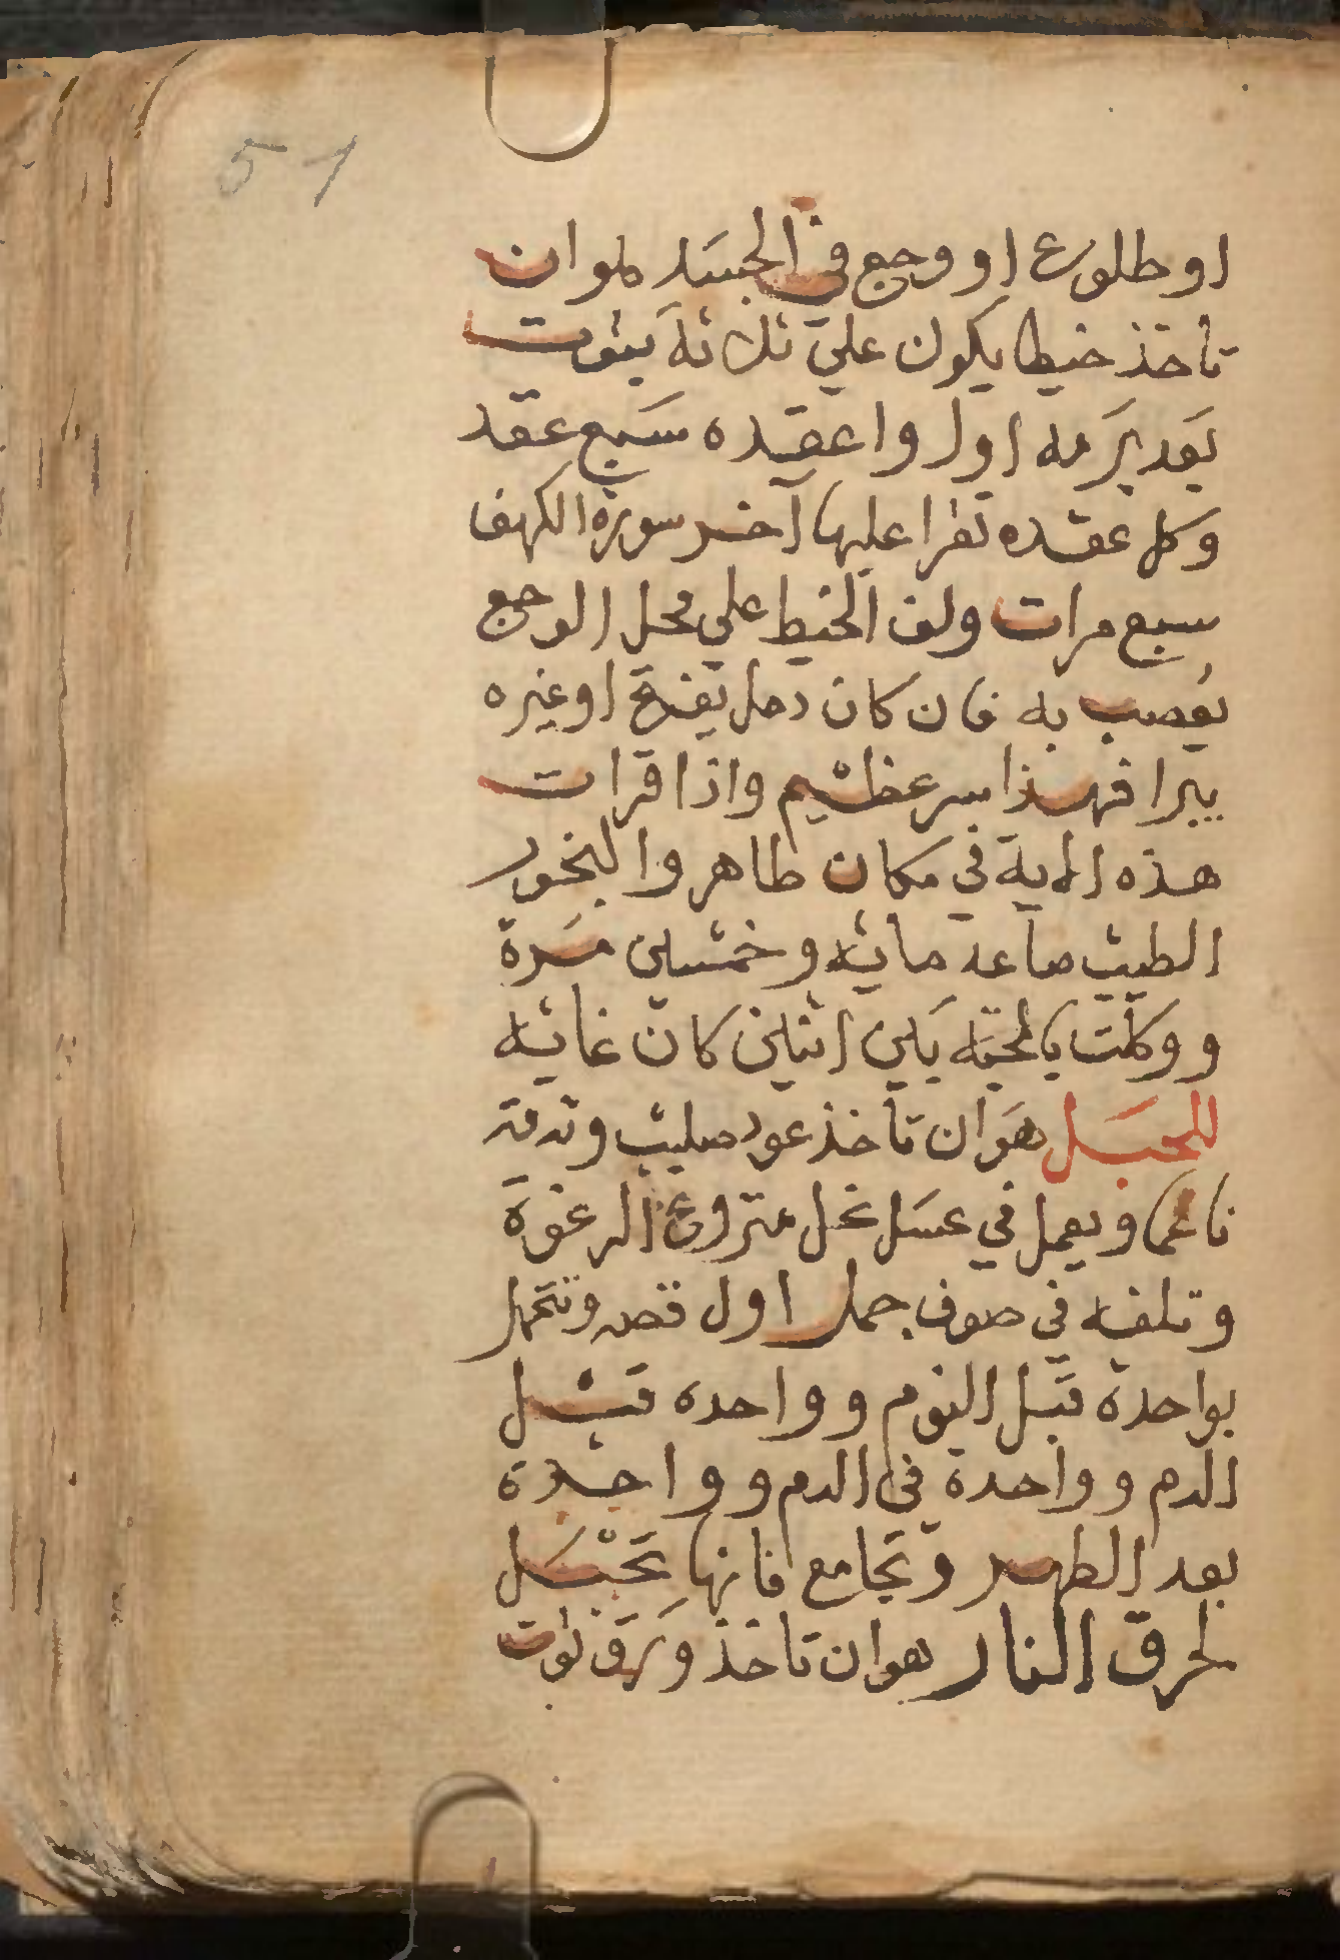 51
او طلوع او وجع في الجسد هو ان
تاخذ خيط يكون علي ثلاثة بيوت
بعد برمه اول واعقده سبع عقد
وكل عقده تقرا عليها آخر سورة الكهف
سبع مرات ولف الخيط علي محل الوجع
يعصب به فان كان دمل يفتح او غيره
يبرا فهذا سر عظيم واذا قرات
هذه الاية في مكان طاهر والبخور
الطيب صاعد مايه وخمسين مرة
ووكلت بالمحبه بين اثنين كان غايه
للحبل هو ان تاخذ عود صليب وتدقه
ناعما ويعمل في عسل نحل منزوع الرغوة
وتلفه في صوف جمل اول قصه وتتحمل
بواحدة قبل النوم وواحده قبل
الدم وواحدة في الدم وواحدة
بعد الطهر وتجامع فانها تحبل
لحرق النار هو ان تاخذ ورق توت